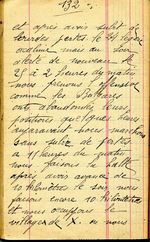 132
et après avoir subit de
lourdes pertes le
mais au soir
alerte de nouveau le
25 à 2 heures du matin
nous prenons l'offensive
comme les
ont abandonnés leurs
positions quelques heures
auparavant nous marchons
sans subir de pertes
à 11 heures du
nous faisons la halte
après avoir avancé de
10 kilomètres le soir nous
faisons encore 10 kilomètres
et nous occupons le
village de X. ou nous